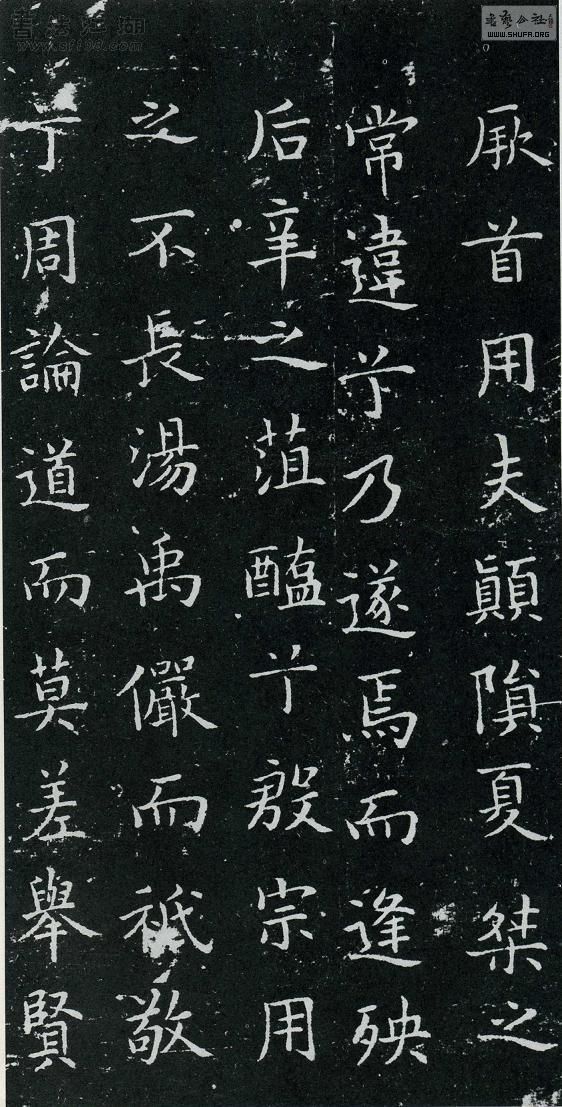 厥首用夫顛隕夏桀之
常違兮乃遂焉而逢殃
后辛之菹醢兮殷宗用
之不長湯禹儼而祗敬
兮周論道而莫差舉賢
書法江湖
www.sf108.com
書藝公社
WWW.SHUFA.ORG